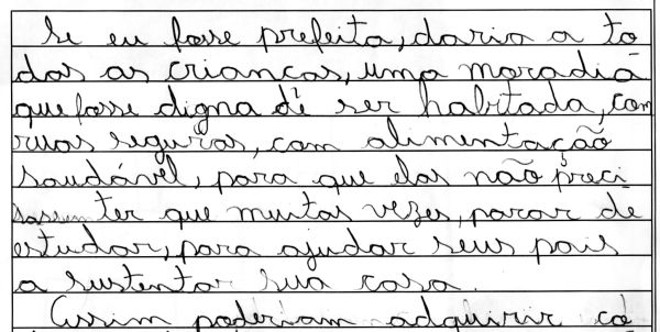 Se eu fosse prefeita, daria a to
das as crianças, uma moradia
que fosse digna de ser habitada, com
ruas seguras, com alimentação
saudável, para que elas não preci
sassem ter que muitas vezes, parar de
estudar, para ajudar seus pais
a sustentar sua casa.
Assim poderiam adquirir co